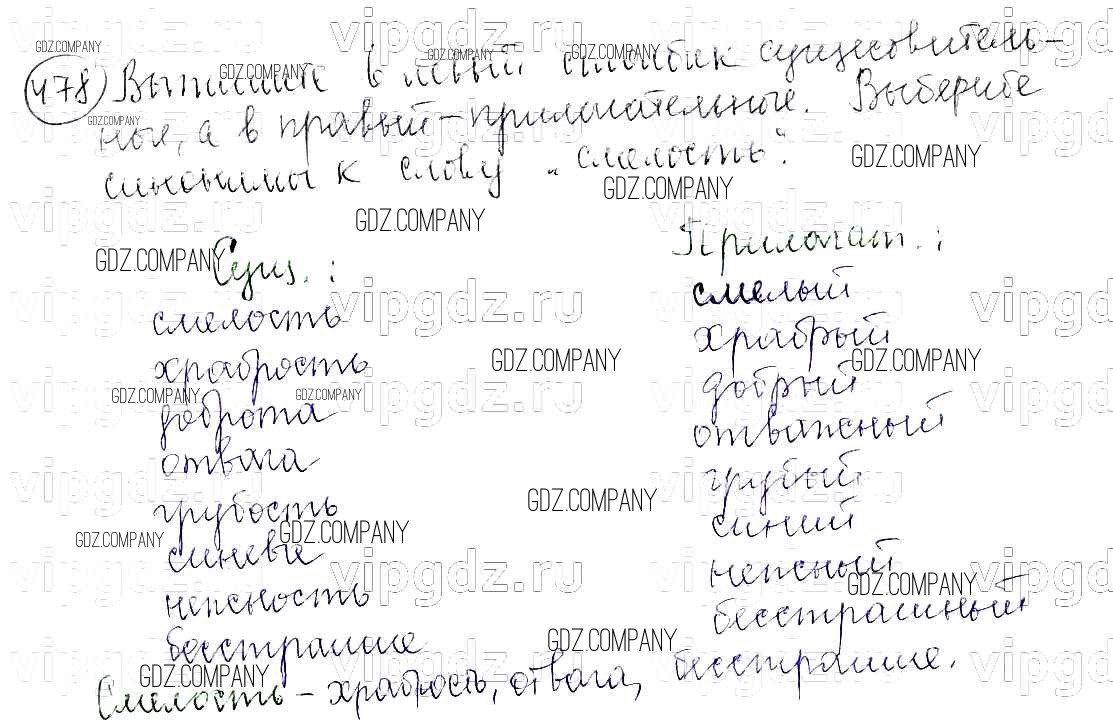 478 Выпишите в левый столбик существитель-
ные, а в правый - прилагательные. Выберите
синонимы к слову „смелость".
Сущ. :
Прилагат. :
смелость
смелый
храбрость
храбрый
доброта
добрый
отвага
отважный
грубость
грубый
синевье
синий
нежность
нежный
бесстрашие
бесстрашный
Смелость - храбрость, отвага, бесстрашие.
vipgdz.ru
GDZ.COMPANY